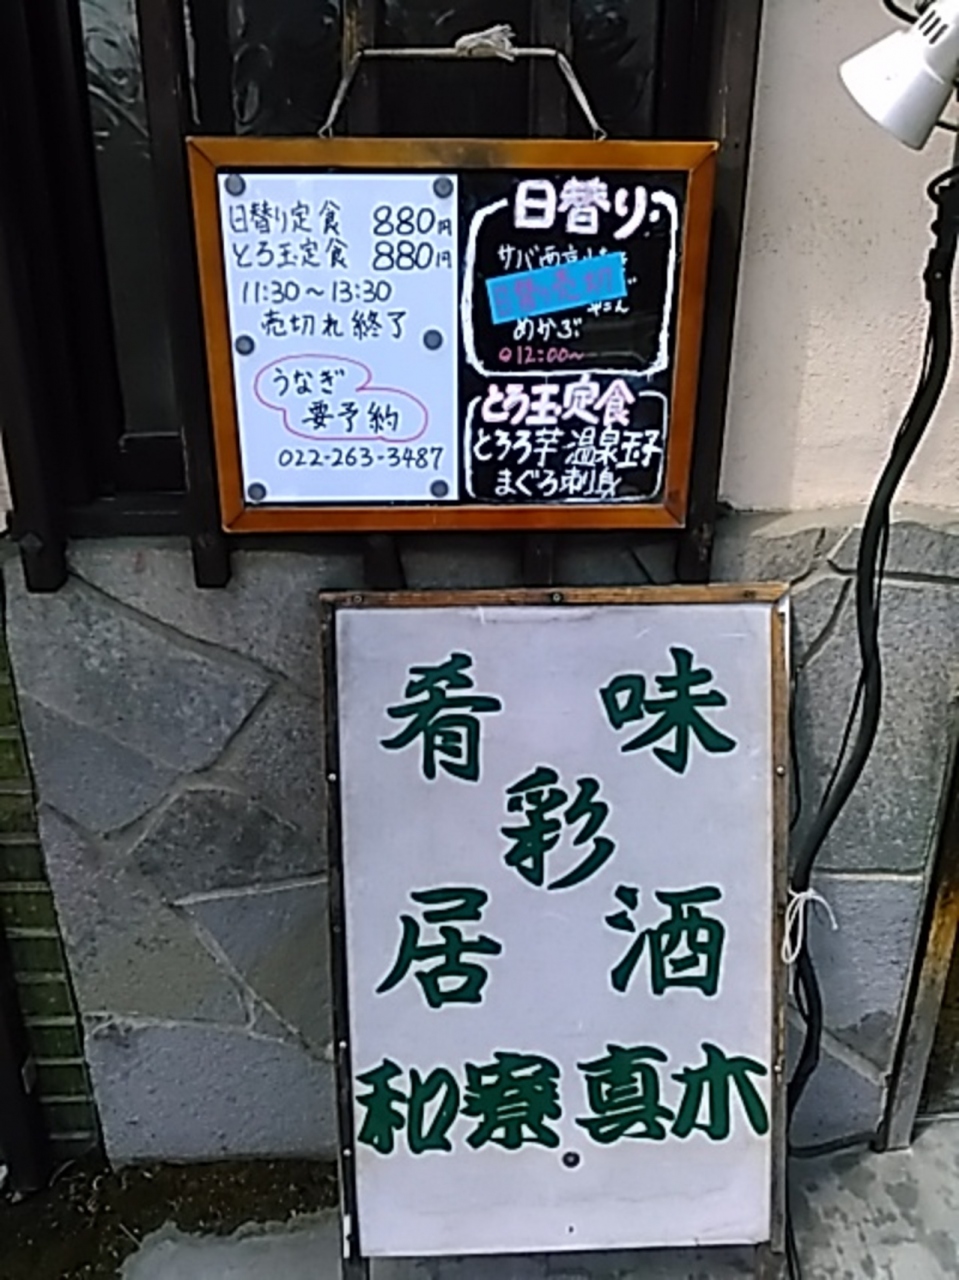 日替り定食 880円
とろ玉定食 880円
11:30～13:30
売切れ終了
うなぎ
要予約
022-263-3487
日替り
サバ西京
日替り売切
めかぶ
12:00～
とろ玉定食
とろろ芋 温泉玉子
まぐろ刺身
味
肴
彩
酒
居
和寮 真木